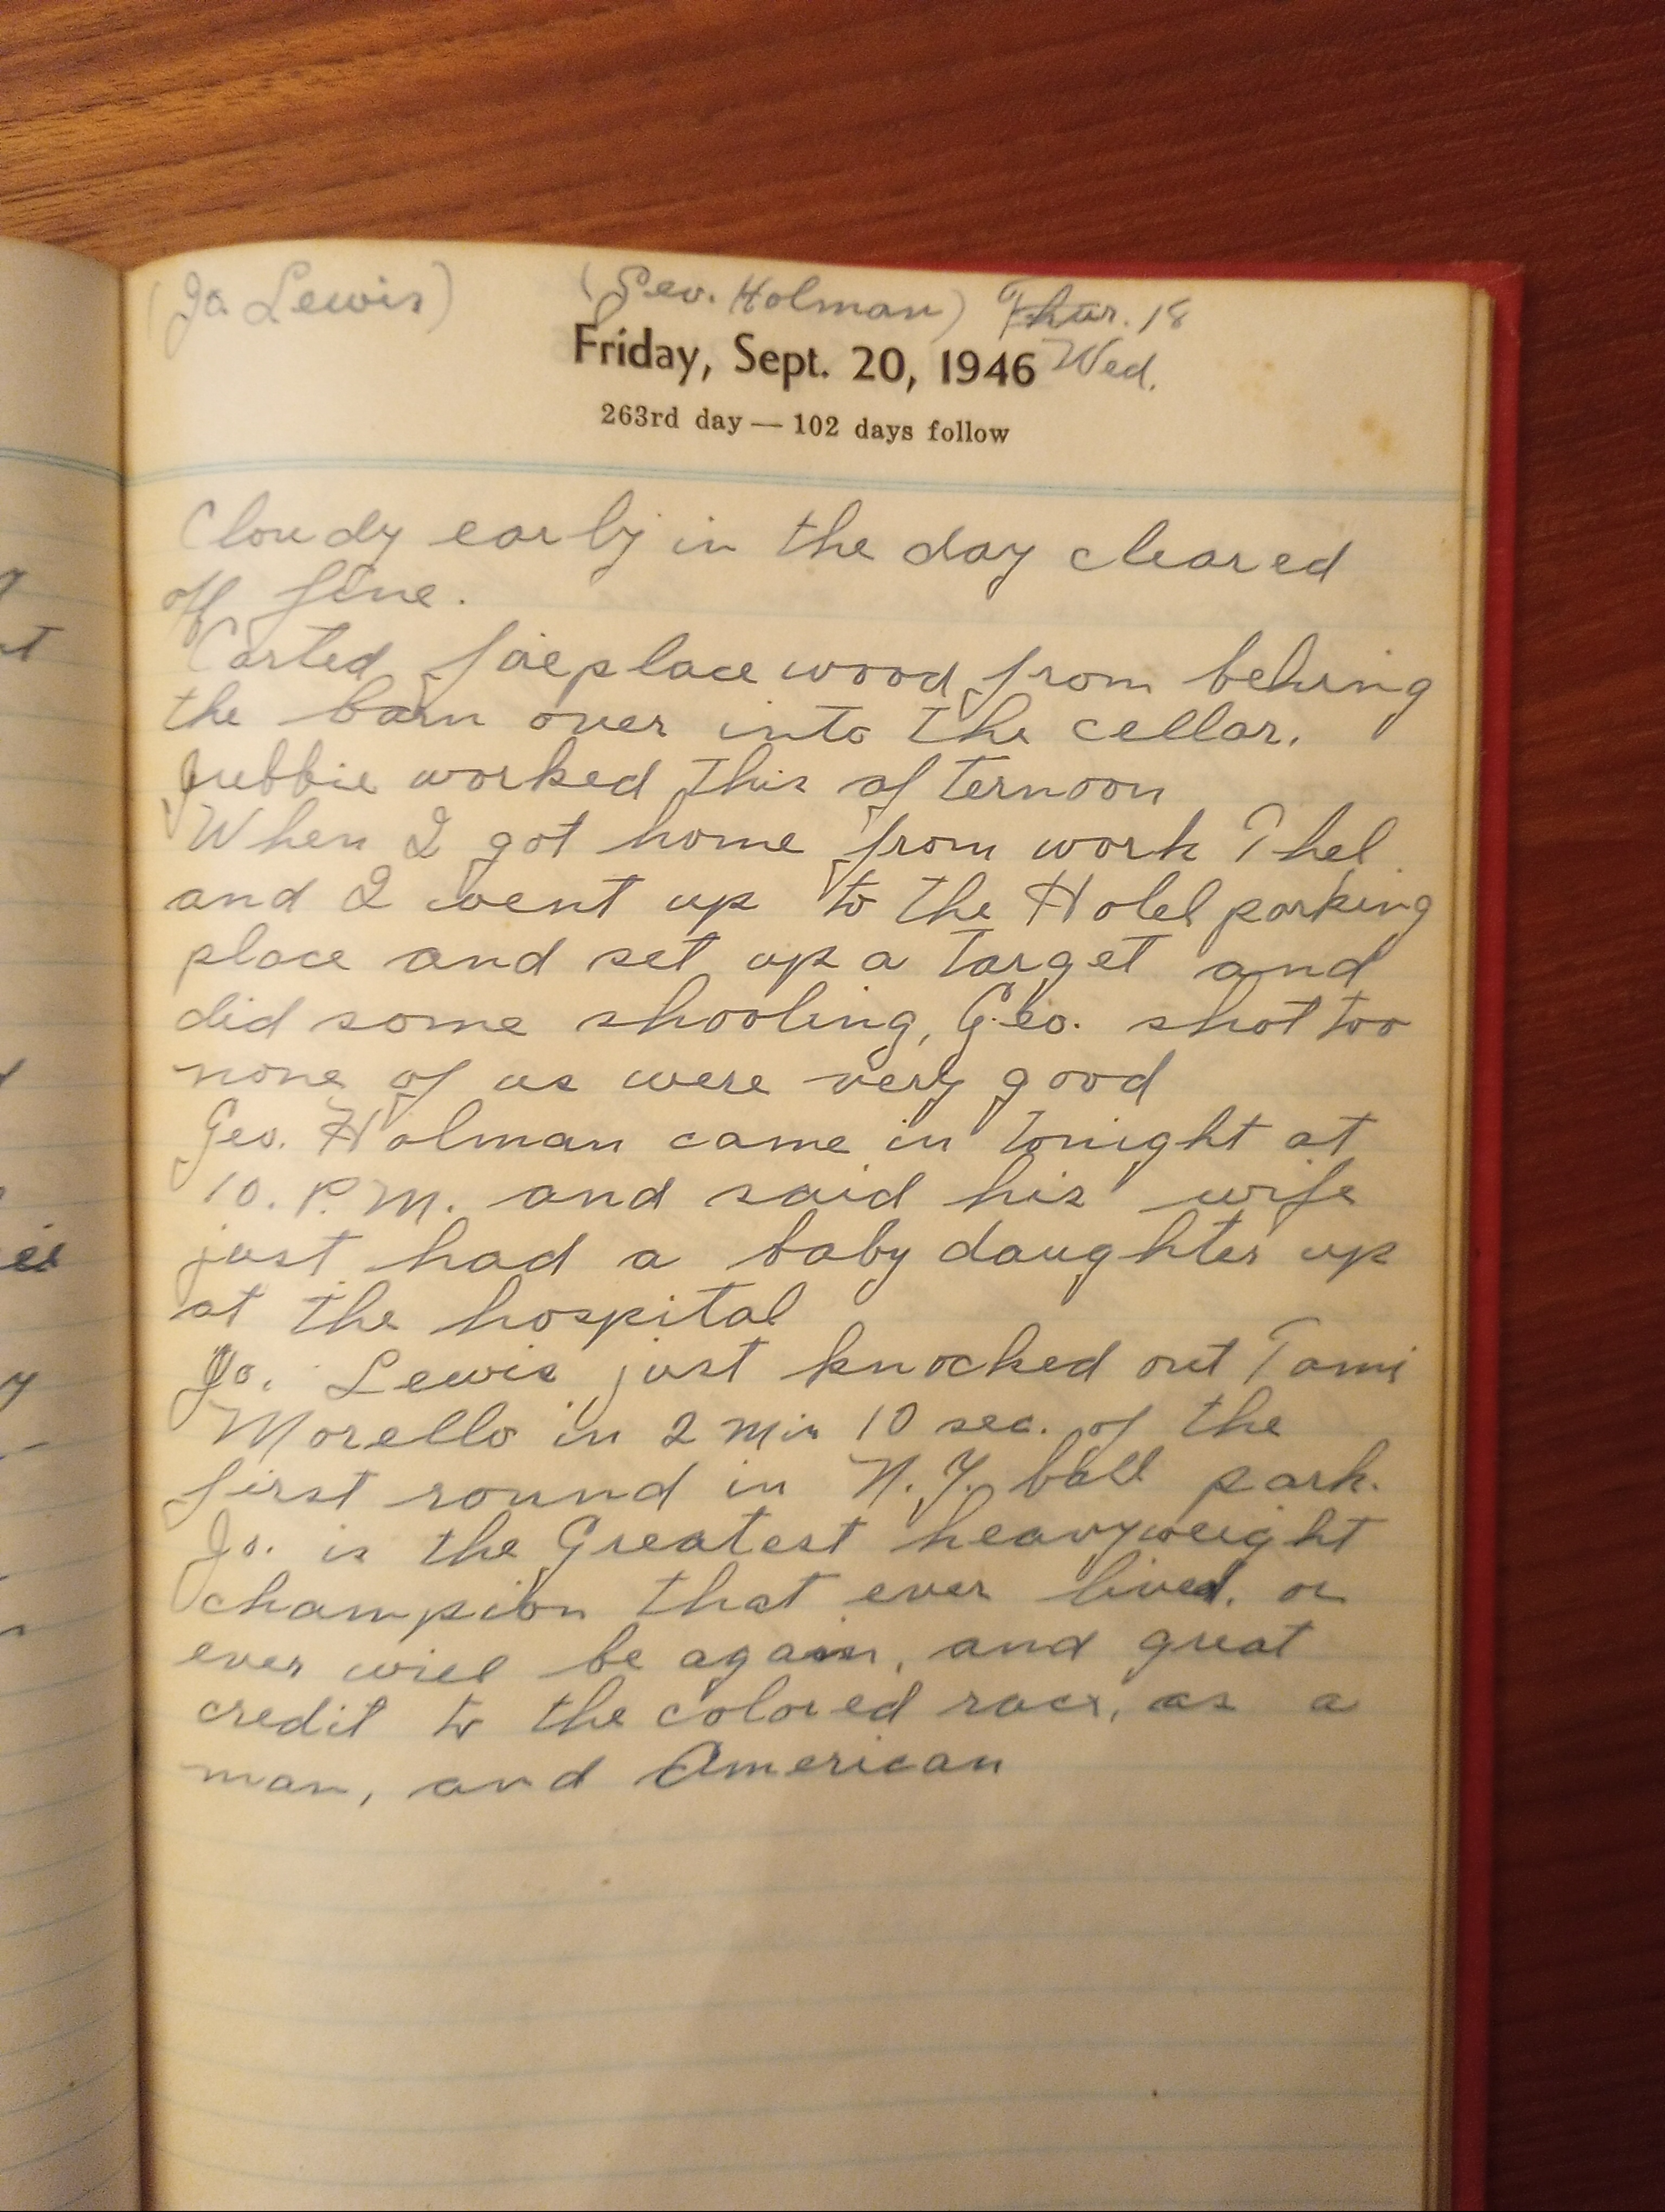 (Jo. Lewis) (Geo. Holman) Thur. 18
Friday, Sept. 20, 1946 Wed.
263rd day — 102 days follow
Cloudy early in the day cleared
off fine.
Carted fireplace wood from behing
the barn over into the cellar.
Jubbie worked this afternoon
When I got home from work Thel
and I went up to the Hotel parking
place and set up a target and
did some shooting, Geo. shot too
none of us were very good
Geo. Holman came in tonight at
10. P.M. and said his wife
just had a baby daughter up
at the hospital
Jo. Lewis just knocked out Tami
Morello in 2 min 10 sec. of the
first round in N.Y. ball park.
Jo. is the Greatest heavyweight
champion that ever lived. or
ever will be again, and great
credit to the colored race, as a
man, and American